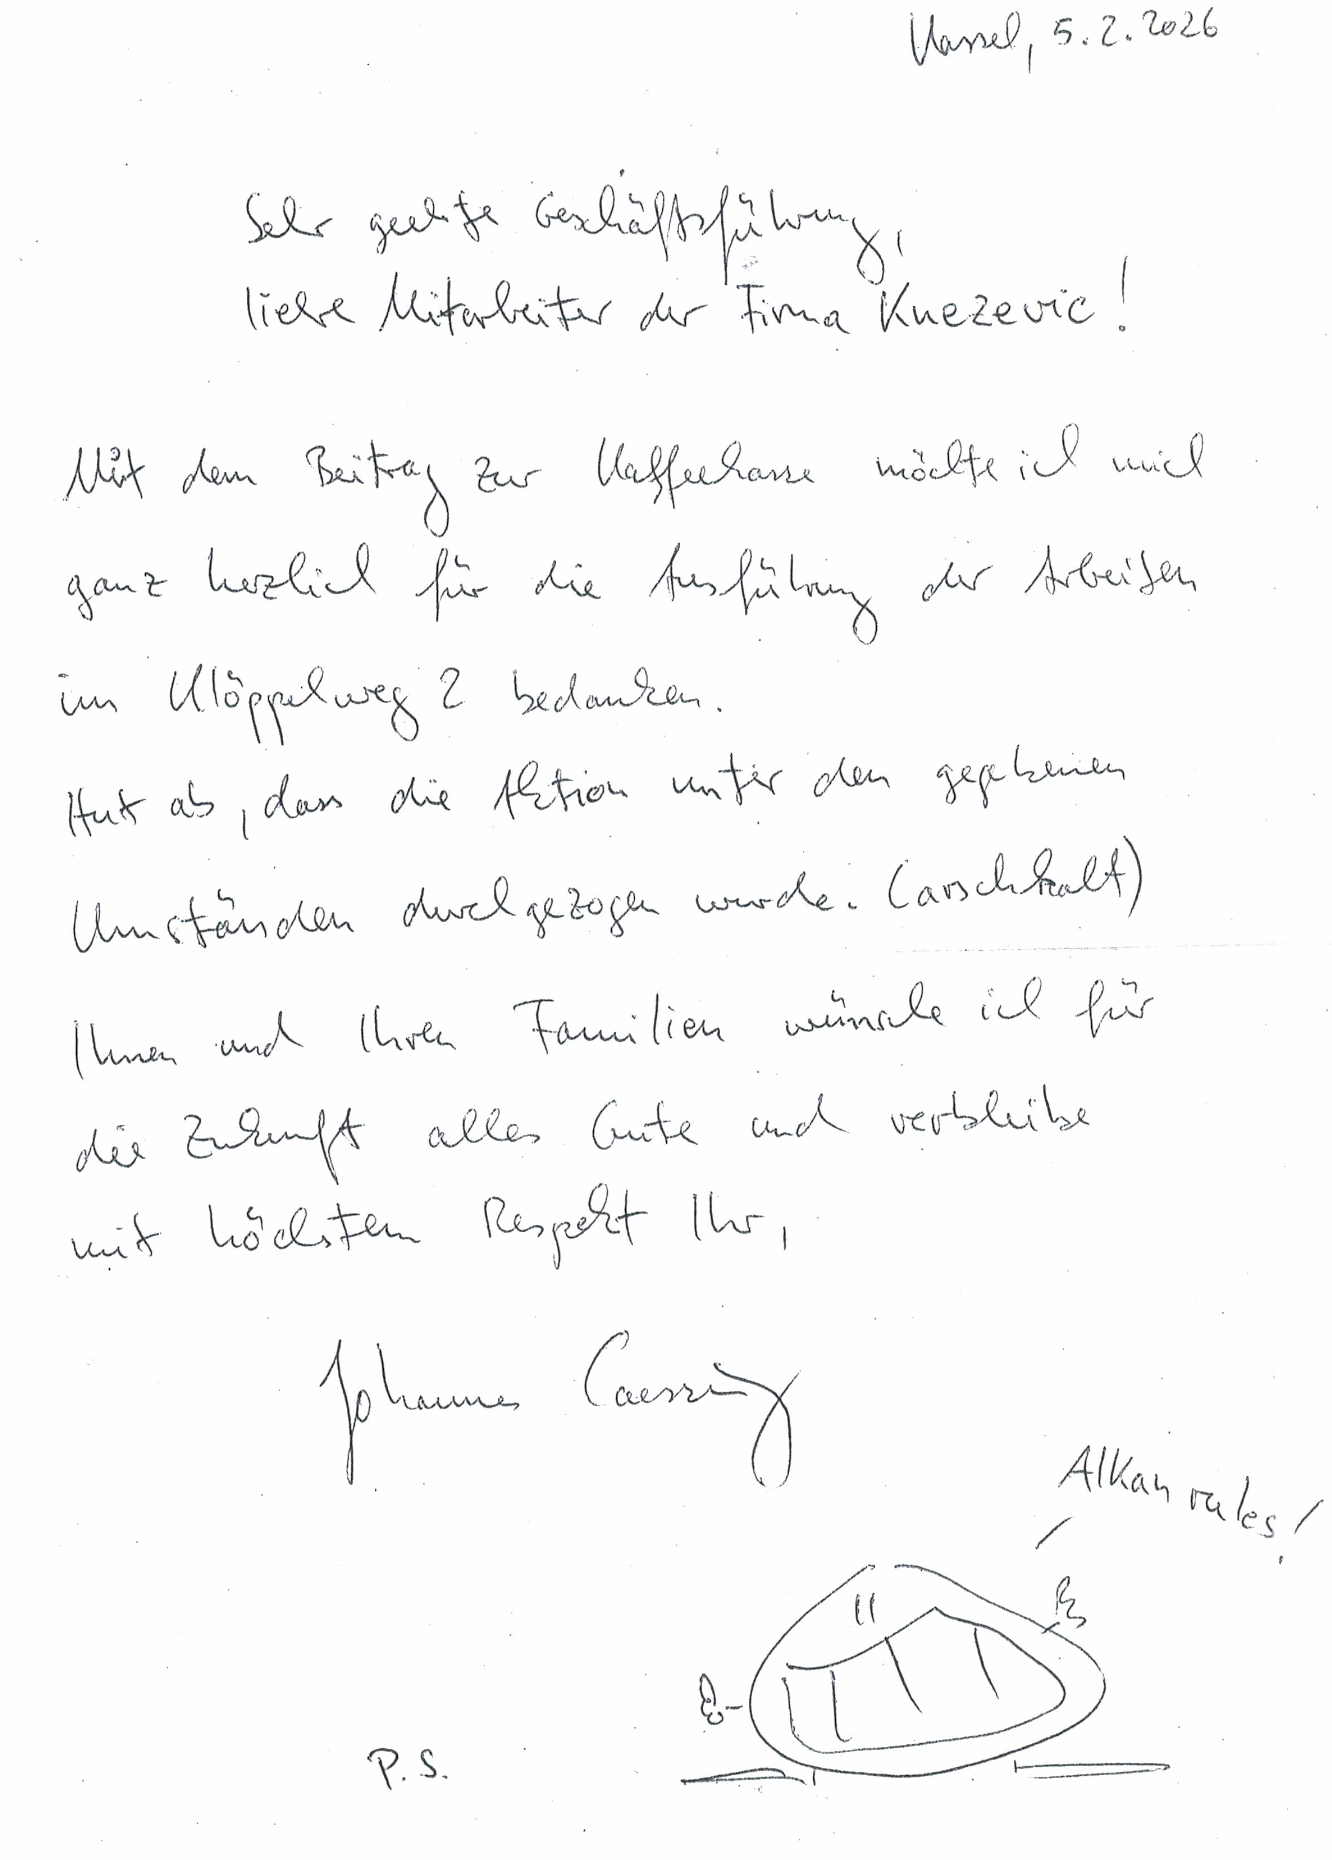 Kassel, 5.2.2026
Sehr geehrte Geschäftsführung,
liebe Mitarbeiter der Firma Knezevic!
Mit dem Beitrag zur Kaffeekasse möchte ich mich
ganz herzlich für die Ausführung der Arbeiten
im Klöppelweg 2 bedanken.
Hut ab, dass die Aktion unter den gegebenen
Umständen durchgezogen wurde. (arschkalt)
Ihnen und Ihren Familien wünsche ich für
die Zukunft alles Gute und verbleibe
mit höchstem Respekt Ihr,
Johannes
Alkan rules!
P.S.